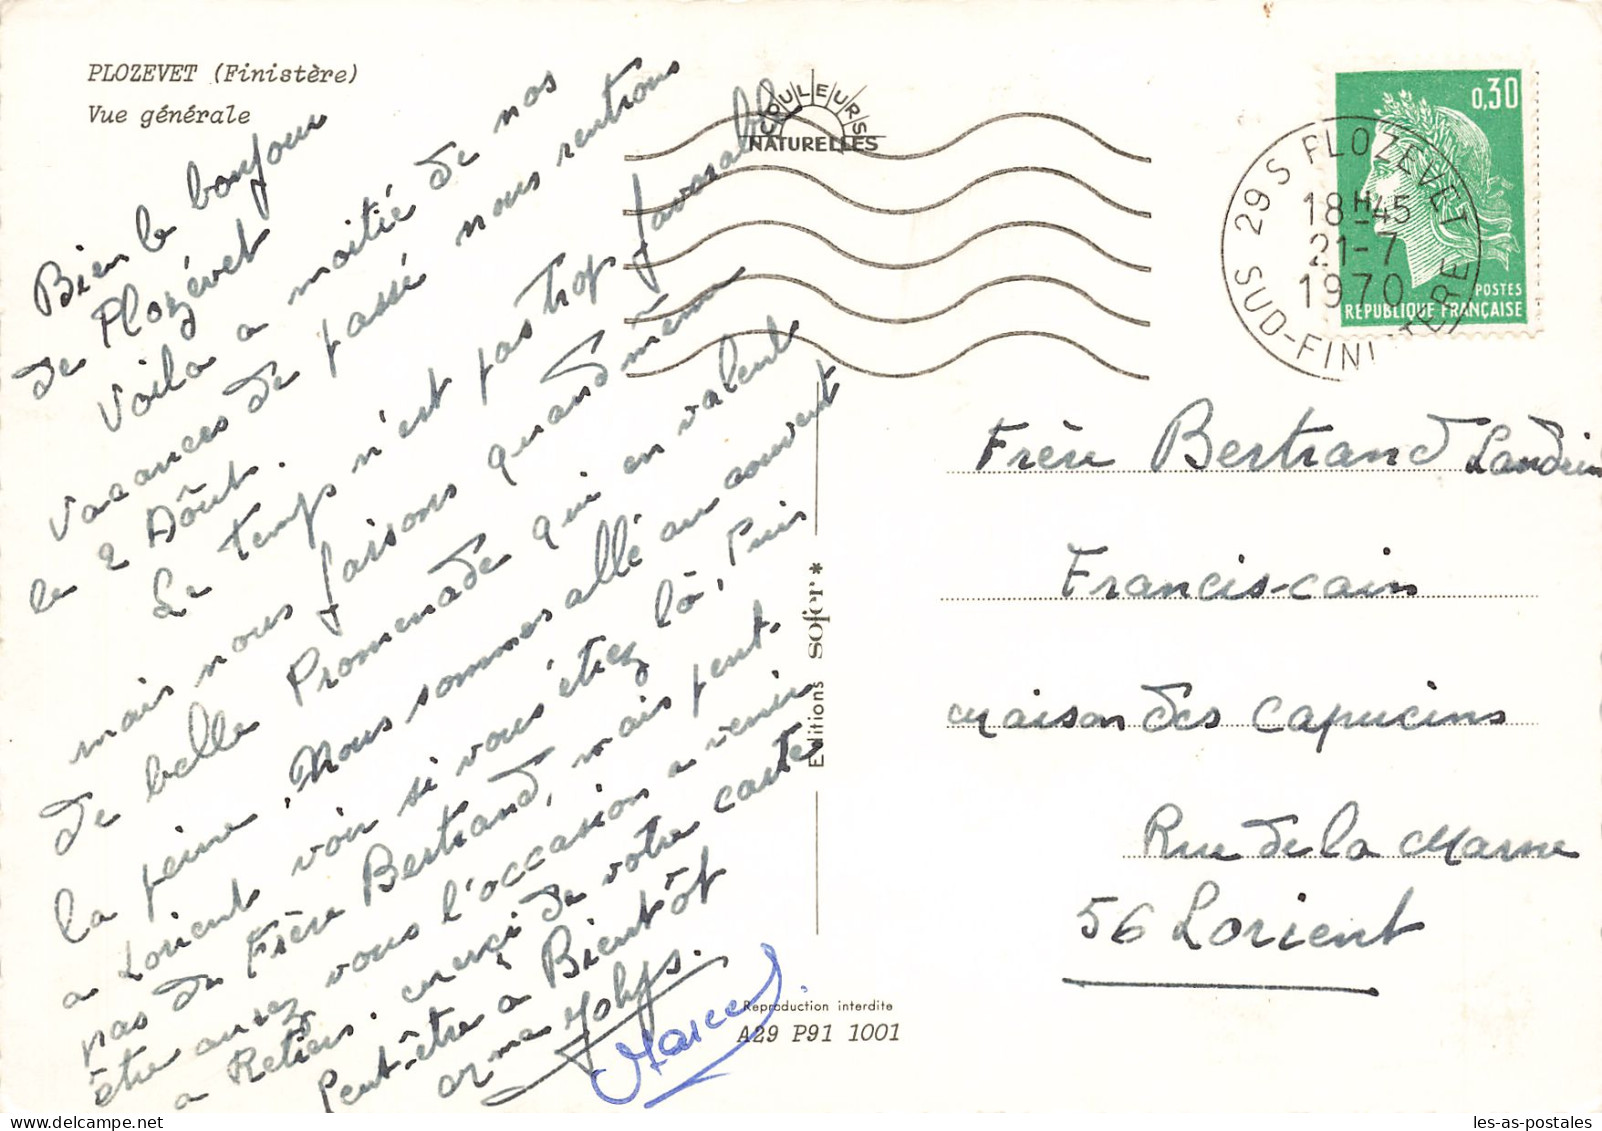 PLOZEVET (Finistère)
Vue générale
COULEURS
NATURELLES
0,30
POSTES
REPUBLIQUE FRANÇAISE
29 S PLOZEVET
18H-45
21-7
1970
SUD-FINISTERE
Bien le bonjour
de Plozévet
Voila a moitié de nos
vacances de passé nous rentrons
le 2 Aôut.
Le temps n'est pas trop favorable
mais nous faisons quand même
de belle Promenade qui en valent
la peine. Nous sommes allé au couvent
a Lorient voir si vous étiez là, Puis
pas de Frère Bertrand, mais peut-
être aurez vous l'occasion a venir
a Retiers. merçi de votre carte
Peut-être a Bientôt
Marcel
Frère Bertrand Landrein
Francis-cain
maison des capucins
Rue de la Marne
56 Lorient
Editions Sofer*
Reproduction interdite
A29 P91 1001
les-as-postales